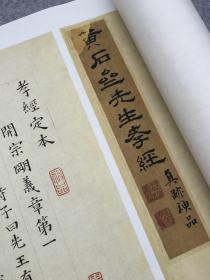 黃石亝先生孝經
真跡神品
孝經定本
開宗明義章第一
侍子曰先王